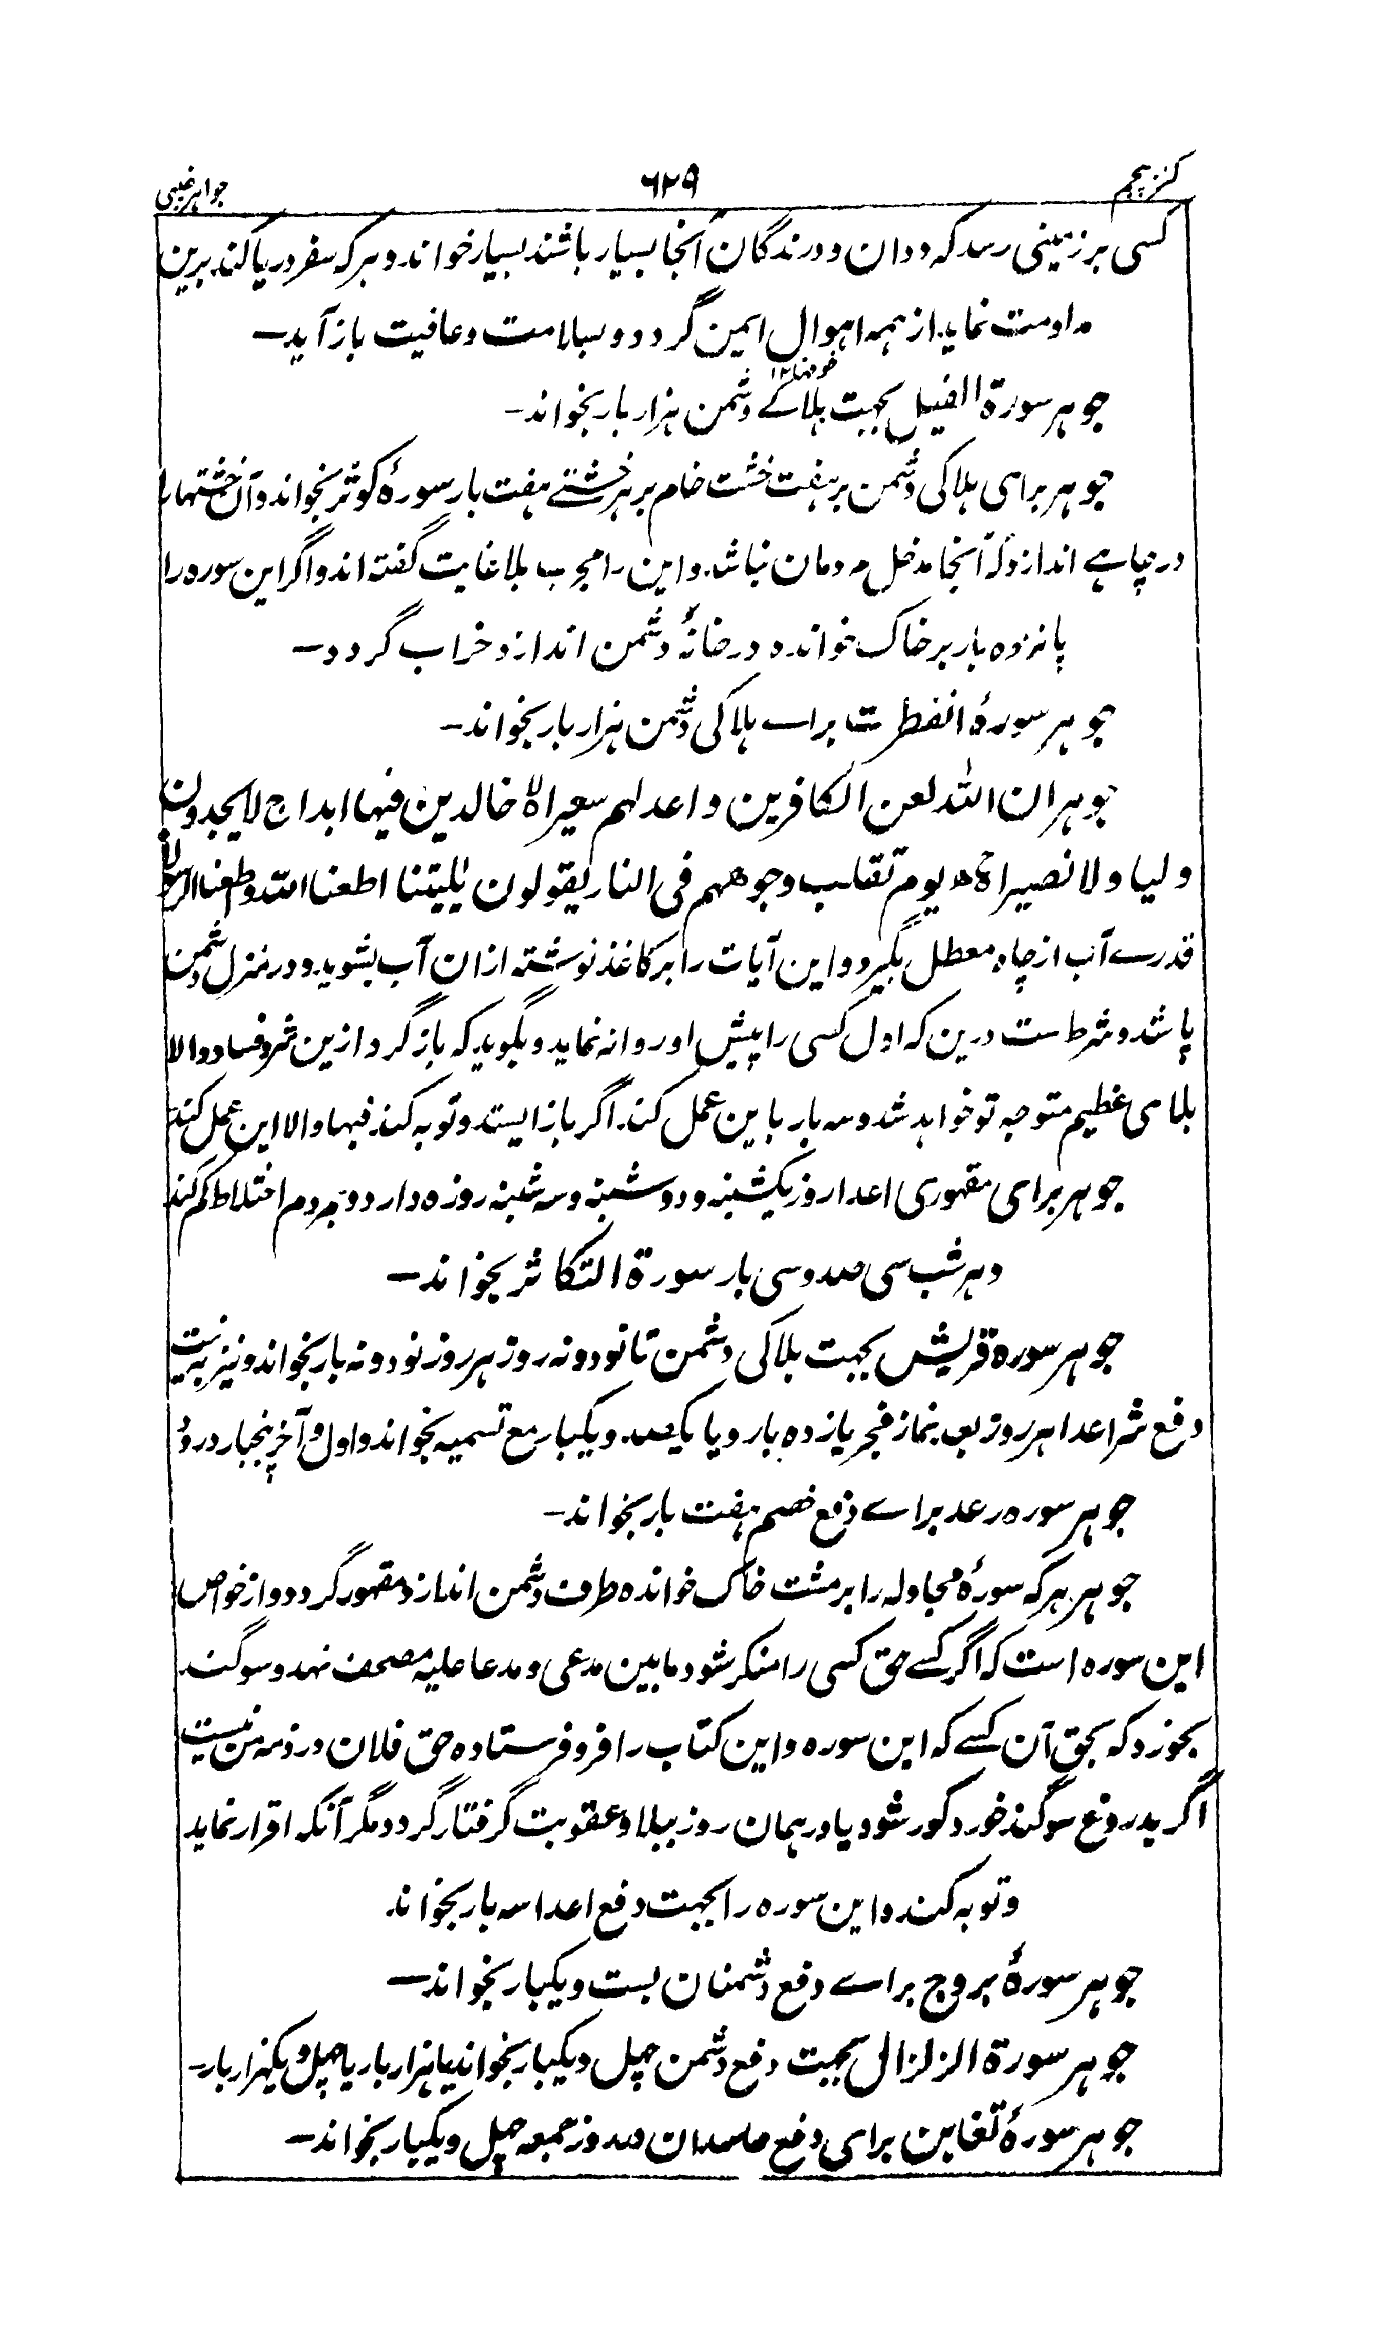 کنز پنجم ۶۲۹ جواهر غیبی
کسی بر زمینی رسد که ددان و درندگان آنجا بسیار باشند بسیار خواند و هرکه سفر دریا کند برین
مداومت نماید از همه اهوال ایمن گردد و بسلامت و عافیت باز آید—
جوهر سورة الفیل بجهت ہلاکے دشمن ہزار بار بخواند—
جوهر برای ہلاکی دشمن بر ہفت خشت خام بر ہر خشتے ہفت بار سورۂ کوثر بخواند و آن خشتها را
در چاہے اندازد کہ آنجا مدخل مردمان نباشد و این را مجرب بلا غایت گفته اند و اگر این سوره را
پانزده بار بر خاک خوانده در خانۂ دشمن اندازد خراب گردد—
جوهر سورۂ انفطرت براے ہلاکی دشمن ہزار بار بخواند—
جوهر ان الله لعن الکافرین و اعد لهم سعیرا لا خالدین فیها ابدا ج لا یجدون
ولیا ولا نصیرا ه یوم تقلب وجوههم فی النار یقولون یٰلیتنا اطعنا الله و اطعنا الرسولا
قدرے آب از چاه معطل بگیرد و این آیات را بر کاغذ نوشته ازان آب بشوید و در منزل دشمن
پاشد و شرط ست درین که اول کسی را پیش او روانه نماید و بگوید که باز گرد ازین شر و فساد و الا
بلای عظیم متوجه تو خواهد شد و سه بار باین عمل کند اگر باز ایستد و توبه کند فبها و الا این عمل کند
جوهر برای مقهوری اعدا روز یکشنبه و دوشنبه و سه شنبه روزه دارد و بمردم اختلاط کم کند
و هر شب سی صد و سی بار سورة التکاثر بخواند—
جوهر سوره قریش بجهت ہلاکی دشمن تا نود و نه روز هر روز نود و نه بار بخواند و نیز به نیت
دفع شر اعدا هر روز بعد نماز فجر یازده بار و یا یکصد و یکبار مع تسمیه بخواند و اول و آخر پنجبار درود
جوهر سوره رعد براے دفع خصم ہفت بار بخواند—
جوهر هر که سورۂ مجادله را بر مشت خاک خوانده طرف دشمن اندازد مقهور گردد و از خواص
این سوره است که اگر کسے حق کسی را منکر شود ما بین مدعی و مدعا علیه مصحف نهد و سوگند
بخورد که بحق آن کسے که این سوره و این کتاب را فرو فرستاده حق فلان در ذمه من نیست
اگر بدروغ سوگند خورد کور شود یا در همان روز ببلا و عقوبت گرفتار گردد مگر آنکه اقرار نماید
و توبه کند و این سوره را بجهت دفع اعدا سه بار بخواند
جوهر سورۂ بروج براے دفع دشمنان بست و یکبار بخواند—
جوهر سورة الزلزال بجهت دفع دشمن چہل و یکبار بخواند یا هزار بار یا چہل و یکهزار بار—
جوهر سورۂ تغابن برای دفع حاسدان در روز جمعه چہل و یکبار بخواند—